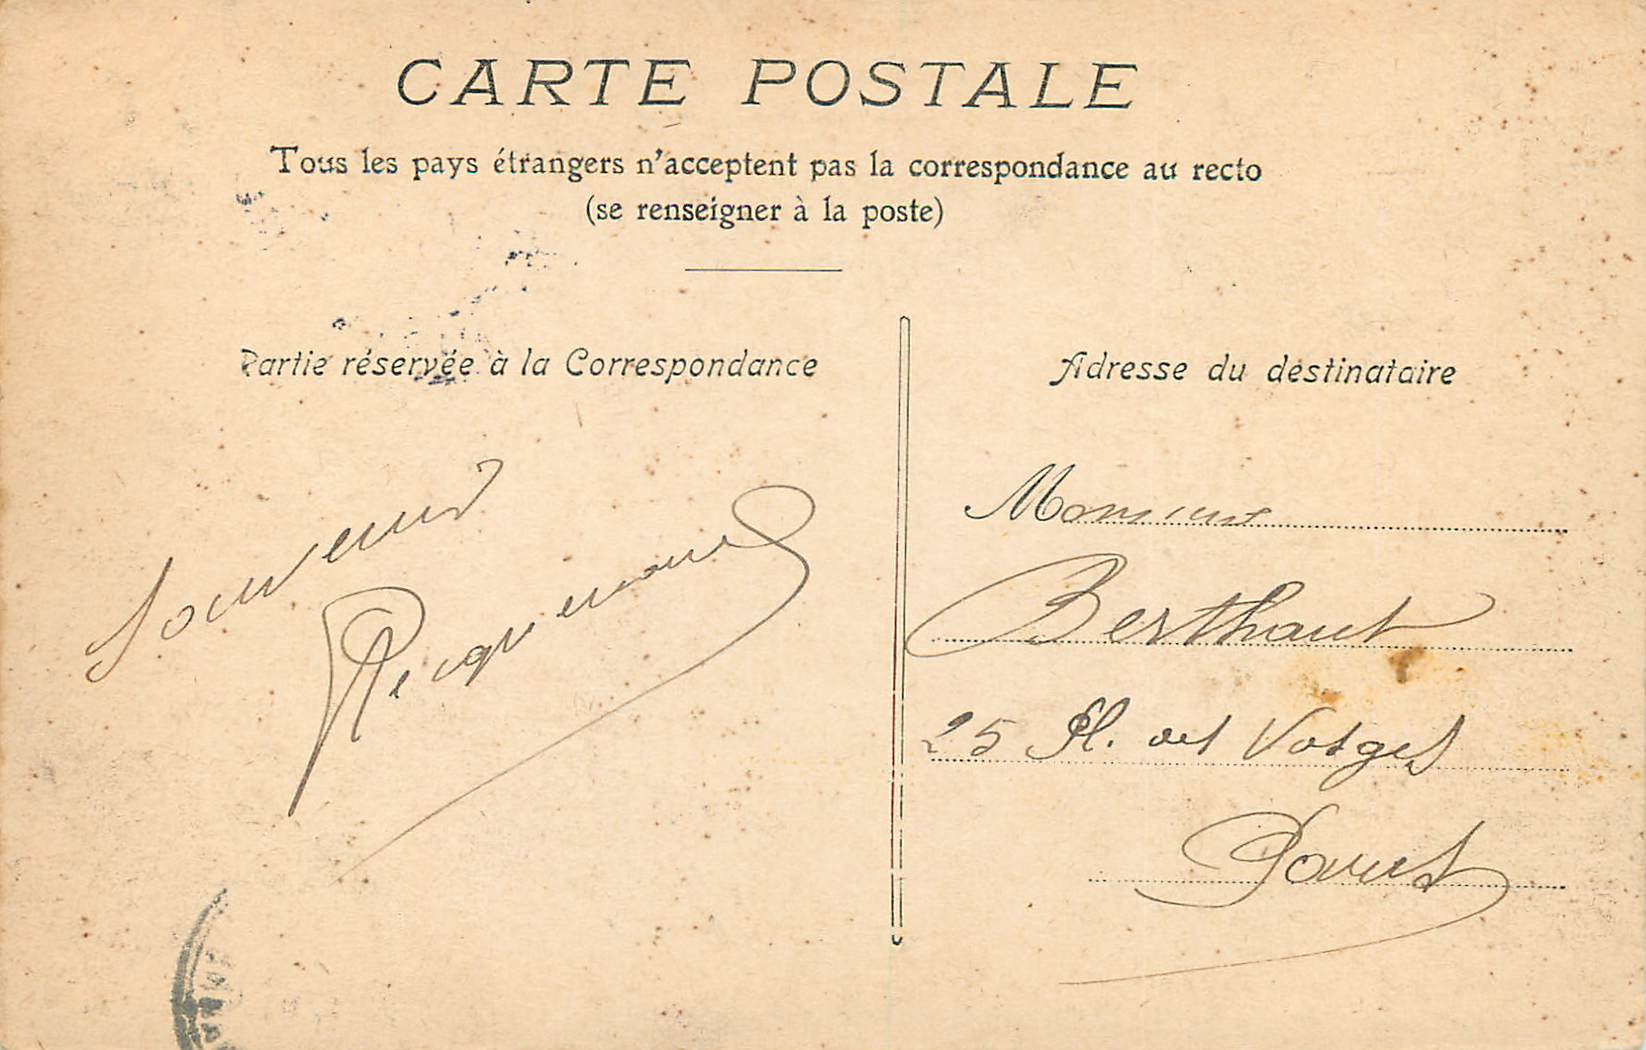 CARTE POSTALE
Tous les pays étrangers n'acceptent pas la correspondance au recto
(se renseigner à la poste)
Partie réservée à la Correspondance
Souvenir
Adresse du destinataire
Monsieur
Berthaut
25 Pl. des Vosges
Paris